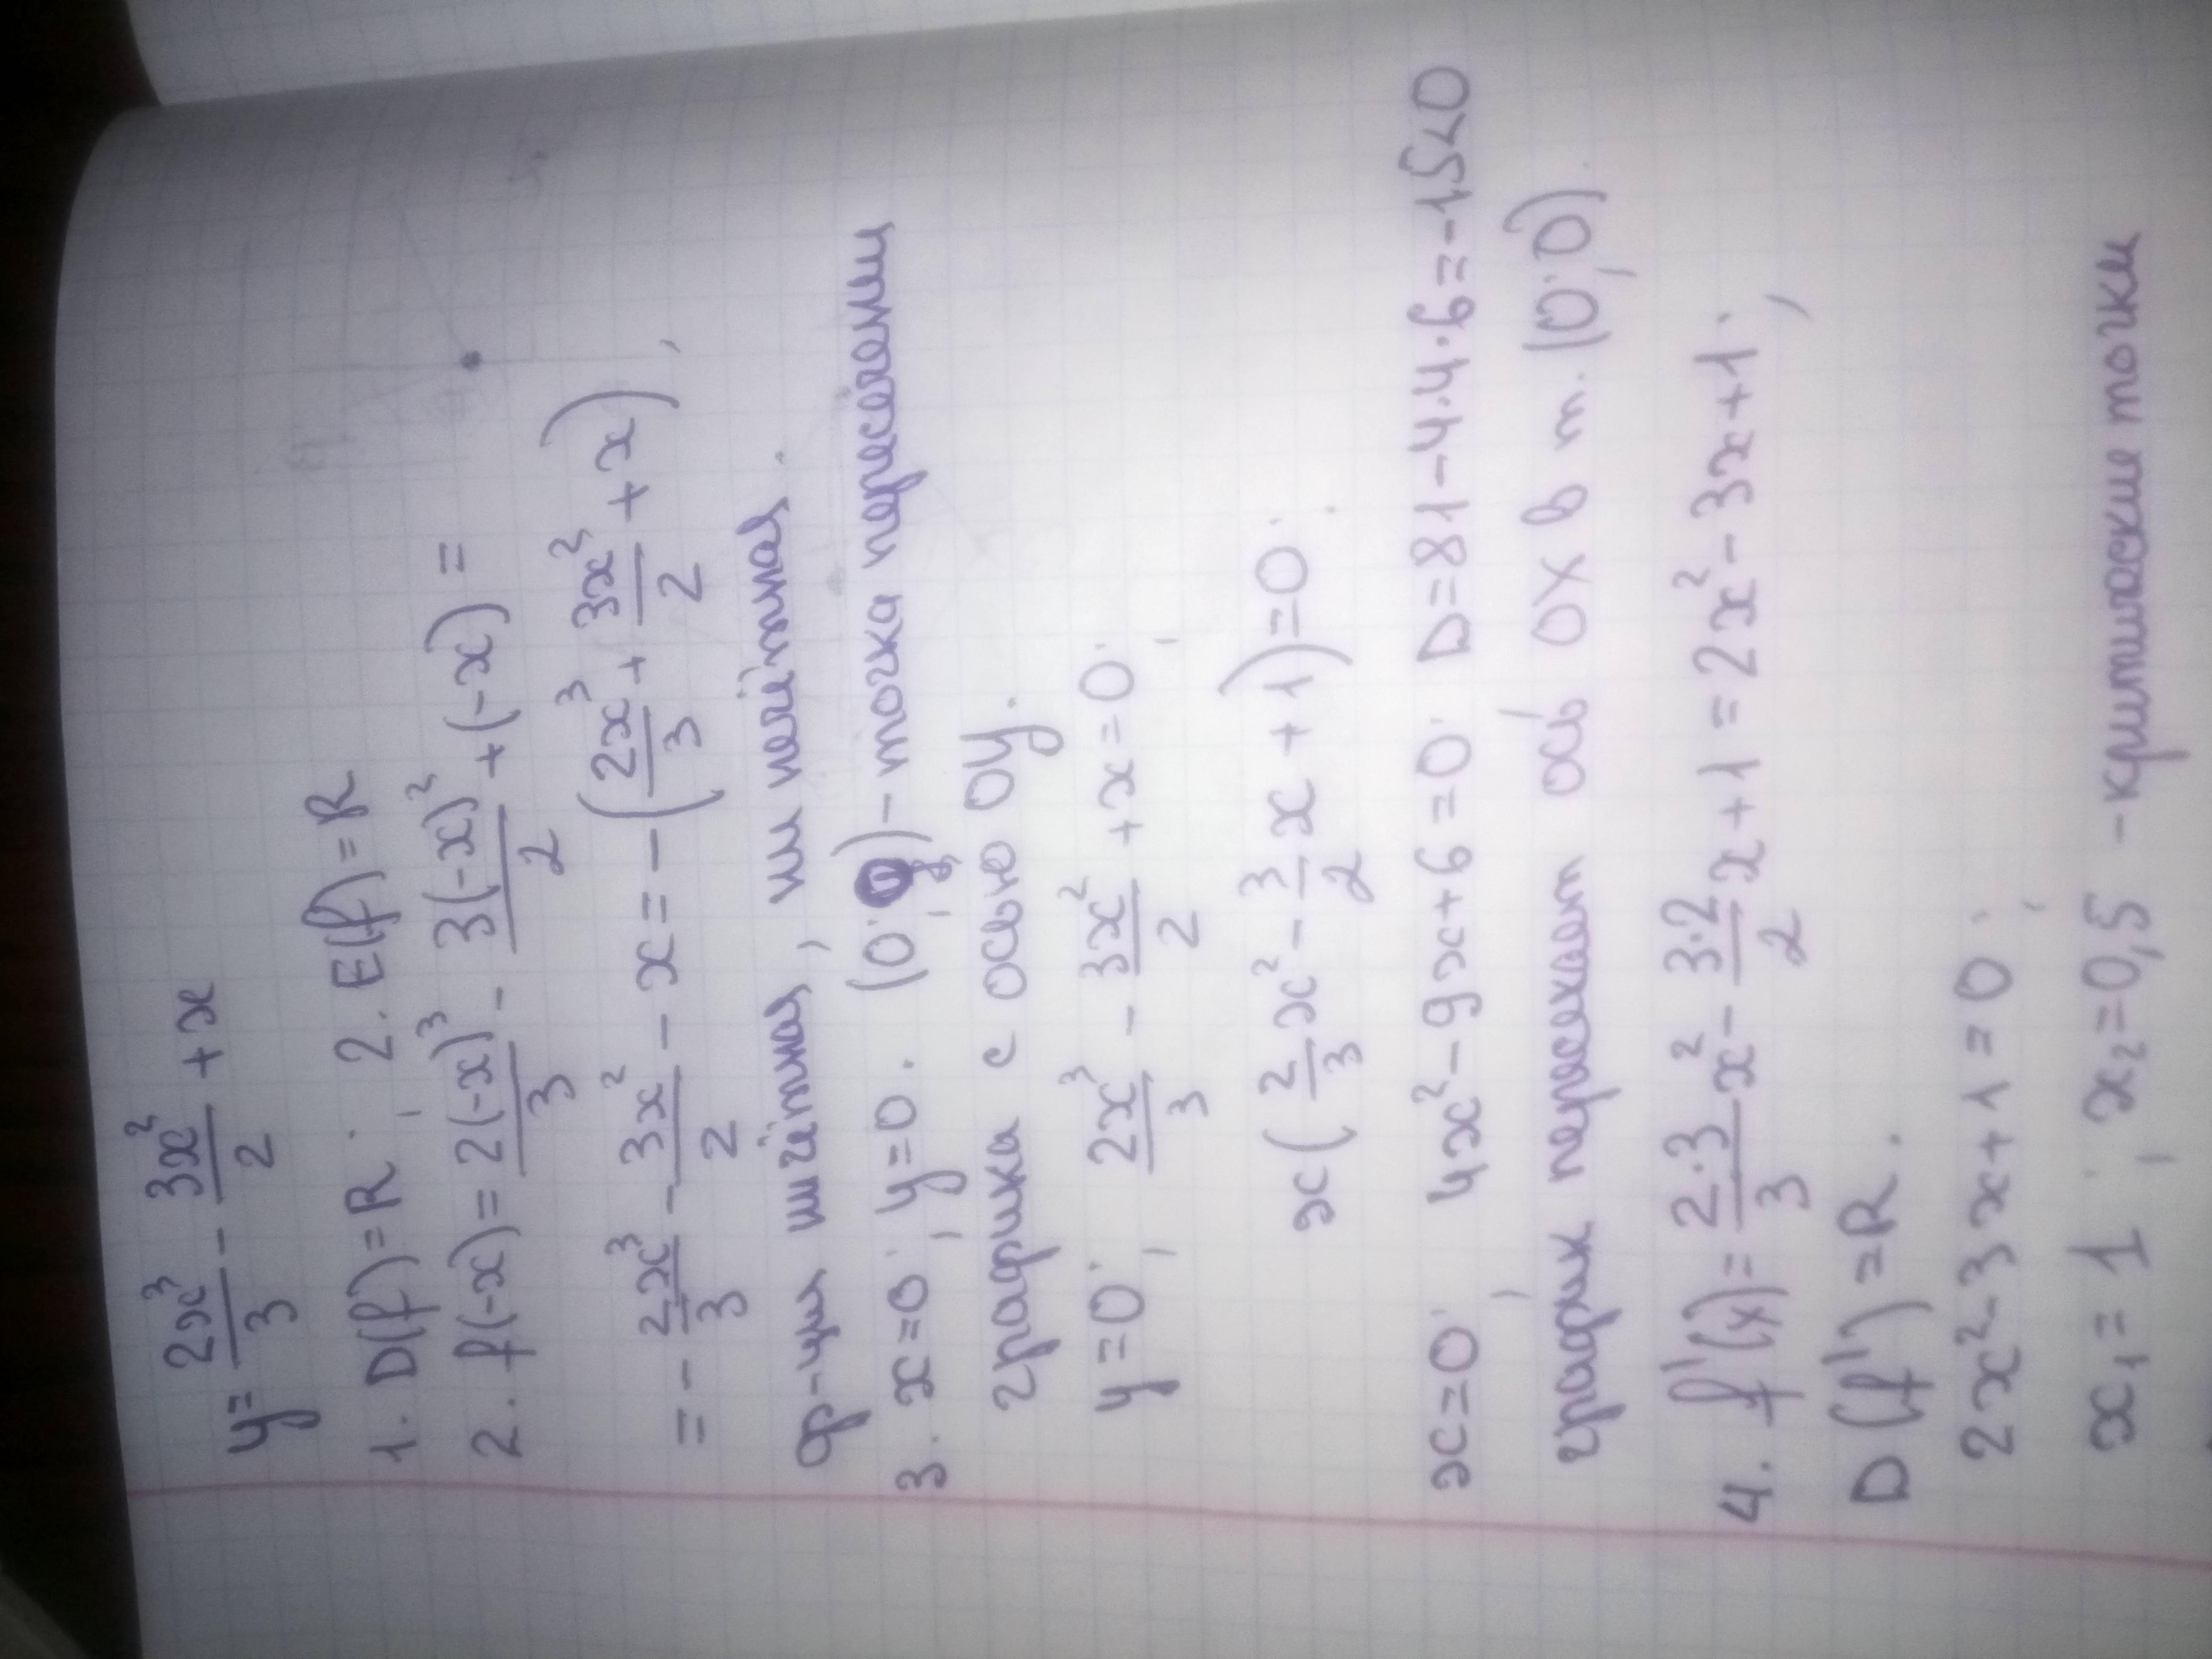 y = 2x³/3 - 3x²/2 + x
1. D(f)=R; 2. E(f)=R
2. f(-x) = 2(-x)³/3 - 3(-x)²/2 + (-x) =
= - 2x³/3 - 3x²/2 - x = -(2x³/3 + 3x²/2 + x),
ф-ция ни чётная, ни нечётная.
3. x=0; y=0. (0; 0) - точка пересечения
графика с осью OY.
y=0; 2x³/3 - 3x²/2 + x = 0;
x(2/3 x² - 3/2 x + 1) = 0;
x=0; 4x² - 9x + 6 = 0; D = 81 - 4·4·6 = -15 < 0
график пересекает ось OX в т. (0; 0).
4. f'(x) = 2·3/3 x² - 3·2/2 x + 1 = 2x² - 3x + 1;
D(f') = R.
2x² - 3x + 1 = 0;
x₁ = 1; x₂ = 0,5 - критические точки